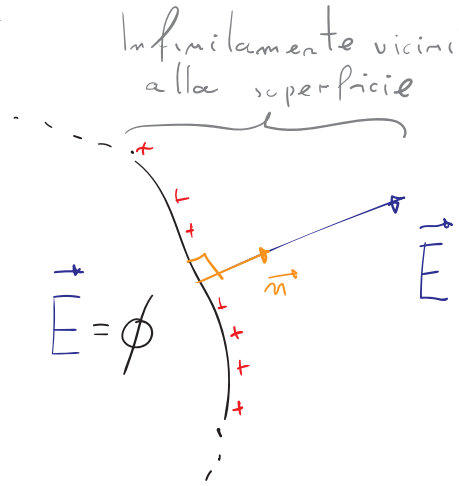 Infinitamente vicini
alla superficie
E
n
E = ϕ